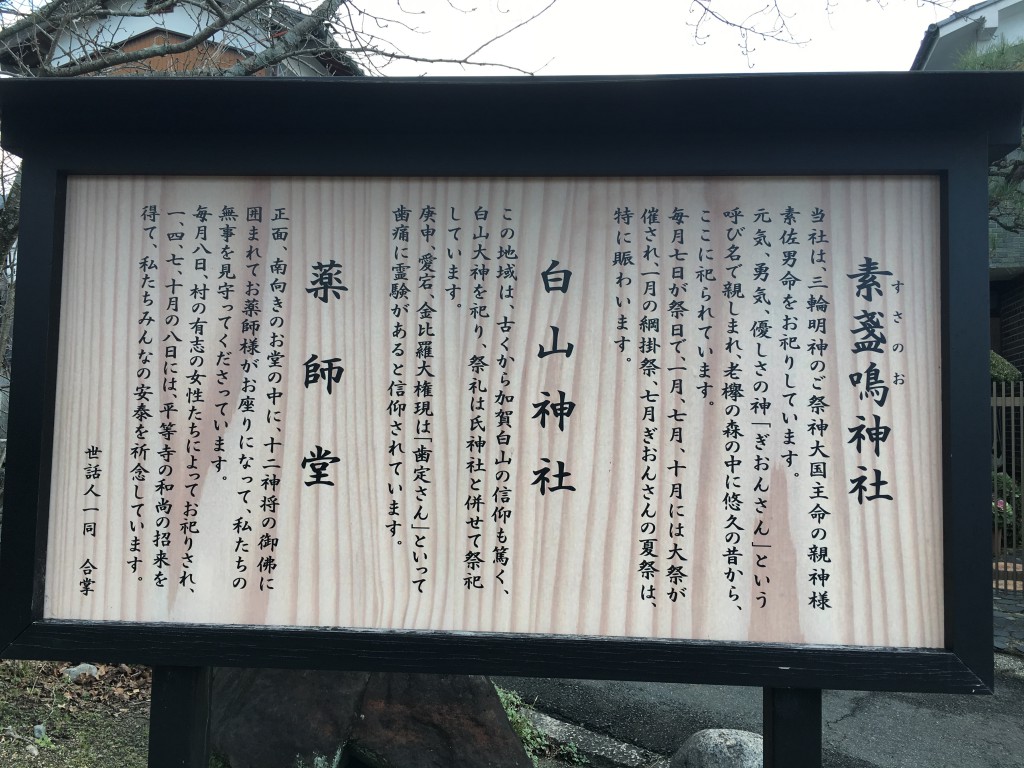 素盞鳴神社
すさのお
当社は、三輪明神のご祭神大国主命の親神様
素佐男命をお祀りしています。
元気、勇気、優しさの神「ぎおんさん」という
呼び名で親しまれ、老欅の森の中に悠久の昔から、
ここに祀られています。
毎月七日が祭日で、一月、七月、十月には大祭が
催され、一月の綱掛祭、七月ぎおんさんの夏祭は、
特に賑わいます。
白山神社
この地域は、古くから加賀白山の信仰も篤く、
白山大神を祀り、祭礼は氏神社と併せて祭祀
しています。
庚申、愛宕、金比羅大権現は「歯定さん」といって
歯痛に霊験があると信仰されています。
薬師堂
正面、南向きのお堂の中に、十二神将の御佛に
囲まれてお薬師様がお座りになって、私たちの
無事を見守ってくださっています。
毎月八日、村の有志の女性たちによってお祀りされ、
一、四、七、十月の八日には、平等寺の和尚の招来を
得て、私たちみんなの安泰を祈念しています。
世話人一同 合掌